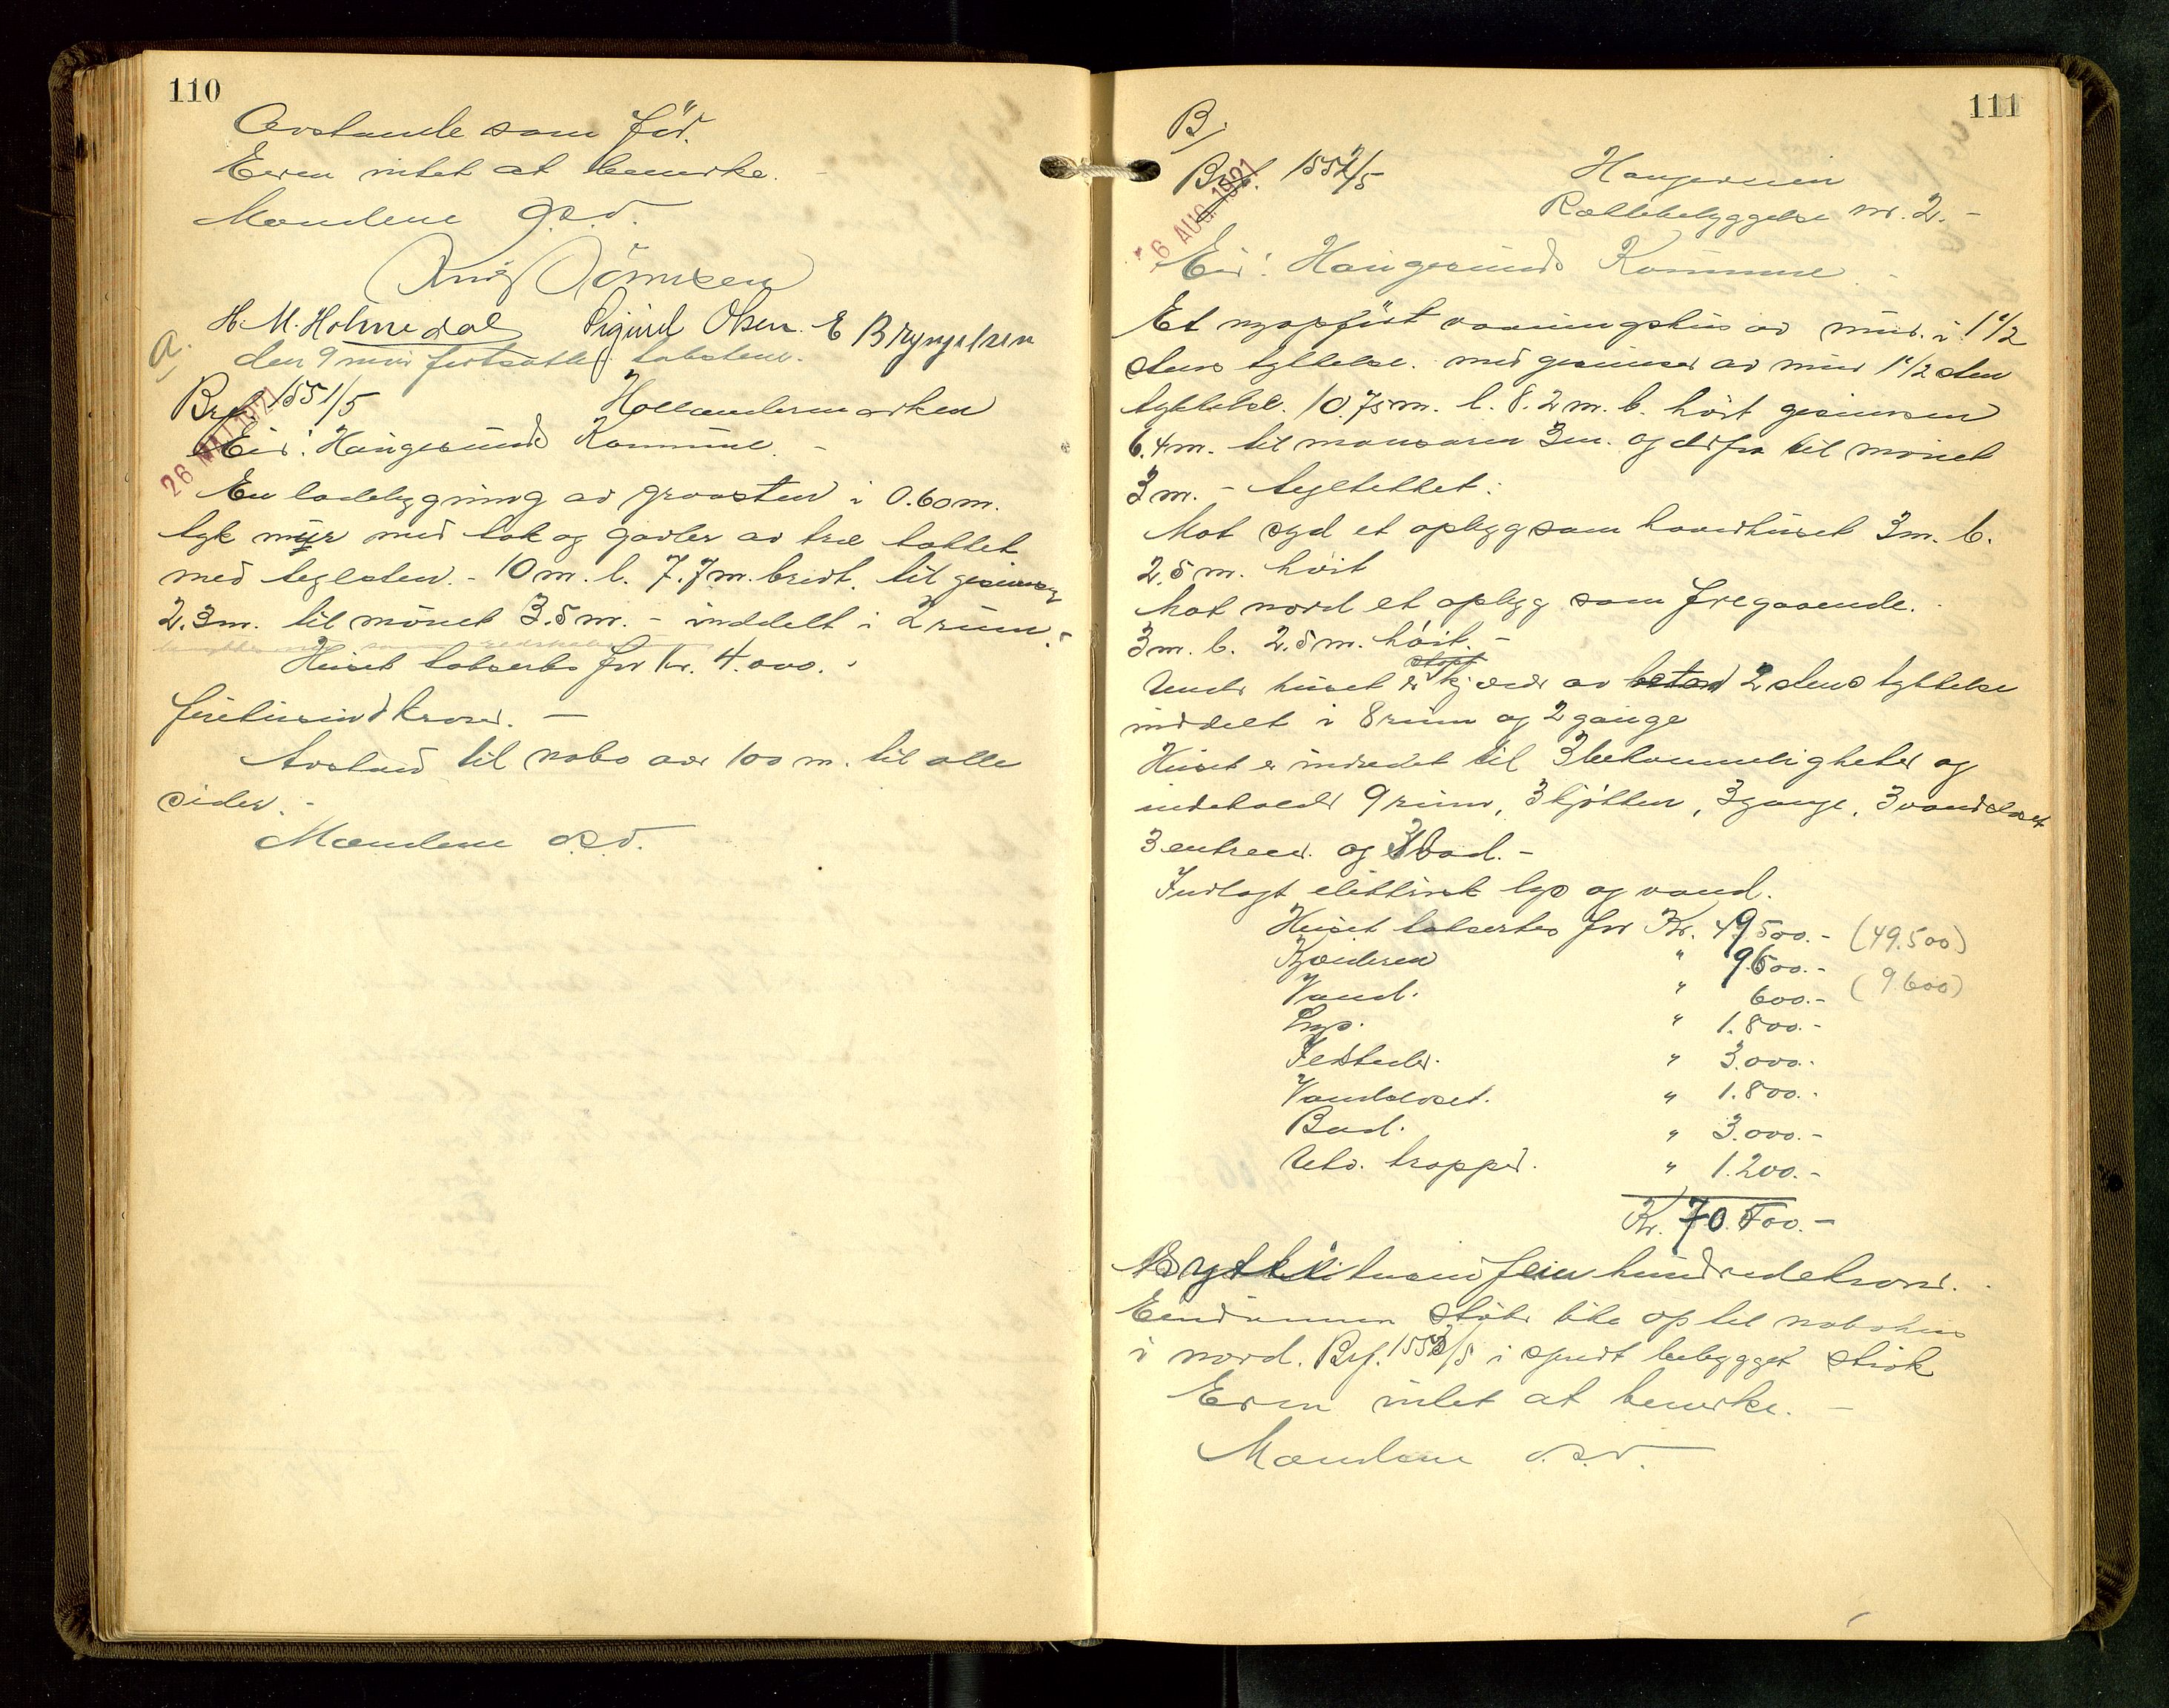 110
Avstande som før.
Eiren intet at bemerke. -
Mændene o.s.v.
H. M. Holmedal Sigurd Olsen. E Bryngelsen
a.
den 9 mai fortsattes taksten.
Brf. 1551/5 Hollendermarken
26 MAI 1921
Eier: Haugesunds Kommune. -
En ladebygning av graasten i 0.60 m.
tyk myr med tak og gavler av træ tækket
med teglsten. - 10 m. l. 7.7 m. bredt. til gesimsen
2.3 m. til mønet 3.5 m. - inddelt i 2 rum. -
Huset taksertes for Kr. 4.000. -
firetusind kroner. -
Avstand til nabo over 100 m. til alle
sider. -
Mændene o.s.v.
111
B,
Brf. 1552/5 Haugeveien
Rækkebebyggelse nr. 2. -
6 AUG. 1921
Eier: Haugesunds Kommune.
Et nyopført vaaningshus av mur i 1 1/2
stens tykkelse. med gesimser av mur 1 1/2 sten
tykkelse. 10.75 m. l. 8.2 m. b. høit gesimsen
6.4 m. til mansaren 3 m. og derfra til mønet
3 m. - tegltekket.
Mot syd et opbygg som hovedhuset 3 m. b.
2.5 m. høit
Mot nord et opbygg som fregaaende.
3 m. b. 2.5 m. høit. -
Under huset er støpt kjæler av beton 2 stens tykkelse
inddelt i 8 rum og 2 gange
Huset er indredet til 3 bekvemmeligheter og
indeholder 9 rum, 3 kjøkken, 3 gange, 3 vandcloset
3 entreer. og 3 bad. -
Indlagt elektrisk lys og vand.
Huset taksertes for Kr. 49.500. - (49.500)
Kjælderen " 9.600. - (9.600)
Vand. " 600. -
Lys. " 1.800. -
Ildsteder. " 3.000. -
Vandcloset. " 1.800. -
Bad. " 3.000. -
Utv. trapper. " 1.200. -
Kr. 70.500. -
Sytti tusen fem hundrede kroner.
Eiendommen støter like op til nabohus
i nord. Brf. 1553/5 i spredt bebygget strøk
Eiren intet at bemerke. -
Mændene o.s.v.